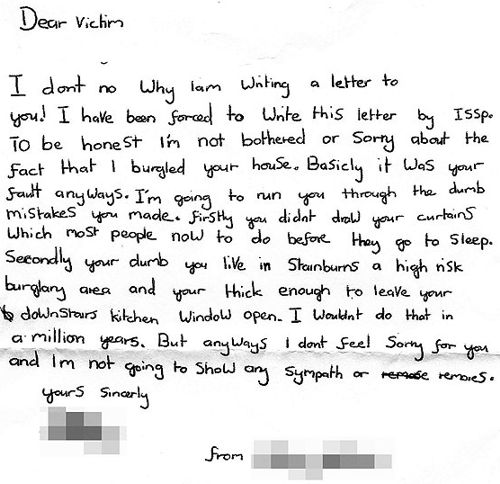 Dear Victim
I dont no Why Iam Writing a letter to
you! I have been forced to Write this letter by ISSP.
To be honest I'm not bothered or Sorry about the
fact that I burgled your house. Basicly it was your
fault anyways. I'm going to run you through the dumb
mistakes you made. firstly you didnt draw your curtains
Which most people now to do before they go to Sleep.
Secondly your dumb you live in Stainburns a high risk
burglary area and your thick enough to leave your
downstairs kitchen Window open. I Wouldnt do that in
a million years. But anyways I dont feel Sorry for you
and Im not going to Show any Sympath or remose remoies.
yours Sincerly
from